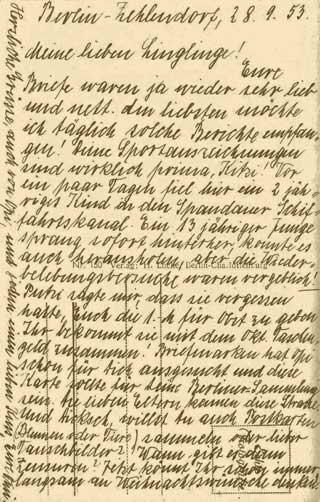 Berlin-Zehlendorf, 28.9.53.
Meine lieben Linglinge!
Eure
Briefe waren ja wieder sehr lieb
und nett. Am liebsten möchte
ich täglich solche Berichte empfan-
gen! Deine Sportauszeichnungen
sind wirklich prima, Vor
ein paar Tagen fiel hier ein 2 jäh-
riges Kind in den Spandauer Schif-
fahrtskanal. Ein 13 jähriger Junge
sprang sofort hinterher, konnte es
auch herausholen, aber die Wieder-
Nr. 100 Verlag: H. Berlin-Charlottenburg
belebungsversuche waren vergeblich!
sagte mir, dass sie vergessen
hatte, Euch die 1.- M für Obst zu geben.
Ihr bekommt sie mit dem Okt. Taschen-
geld zusammen! Briefmarken hat Opi
schon für Dich ausgesucht und diese
Karte sollte für Deine Berliner-Sammlung
sein. Die lieben Eltern kennen diese
und willst du auch Postkarten
(Blumen oder Tiere) sammeln oder lieber
Tauschbilder? Wann gibt es denn
Zensuren? Jetzt könnt Ihr schon immer
langsam an Weihnachtswünsche denken!
Herzliche Grüsse auch von Opi, und